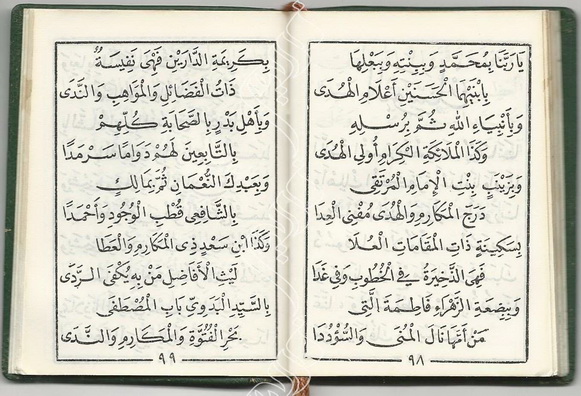 يَارَبَّنَا بِمُحَمَّدٍ وَبِبِنْتِهِ وَبِبَعْلِهَا
بِابْنَيْهَا الْحَسَنَيْنِ أَعْلَامِ الْهُدَى
وَبِأَنْبِيَاءِ اللهِ ثُمَّ بِرُسْلِهِ
وَكَذَا الْمَلَائِكَةِ الْكِرَامِ أُولِى الْهُدَى
وَبِزَيْنَبٍ بِنْتِ الْإِمَامِ الْمُرْتَقِى
دَرَجَ الْمَكَارِمِ وَالْهُدَى مُفْنِى الْعِدَا
بِسَكِينَةٍ ذَاتِ الْمَقَامَاتِ الْعُلَا
فَهِىَ الذَّخِيرَةُ فِى الْخُطُوبِ وَفِى غَدَا
وَبِبِضْعَةِ الزَّهْرَاءِ فَاطِمَةَ الَّتِى
مَنْ أَمَّهَا نَالَ الْمُنَى وَالسُّؤْدُدَا
٩٨
بِكَرِيمَةِ الدَّارَيْنِ فَهْىَ نَفِيسَةٌ
ذَاتُ الْفَضَائِلِ وَالْمَوَاهِبِ وَالنَّدَى
وَبِأَهْلِ بَدْرٍ بِالصَّحَابَةِ كُلِّهِمْ
بِالتَّابِعِينَ لَهُمْ دَوَامًا سَرْمَدًا
وَبِعَبْدِكَ النُّعْمَانِ ثُمَّ بِمَالِكٍ
بِالشَّافِعِى قُطْبِ الْوُجُودِ وَأَحْمَدَا
وَكَذَا ابْنِ سَعْدٍ ذِى الْمَكَارِمِ وَالْعَطَا
لَيْثِ الْأَفَاضِلِ مَنْ بِهِ يُكْفَى الرَّدَى
بِالسَّيِّدِ الْبَدَوِىِّ بَابِ الْمُصْطَفَى
بَحْرِ الْفُتُوَّةِ وَالْمَكَارِمِ وَالنَّدَى
٩٩